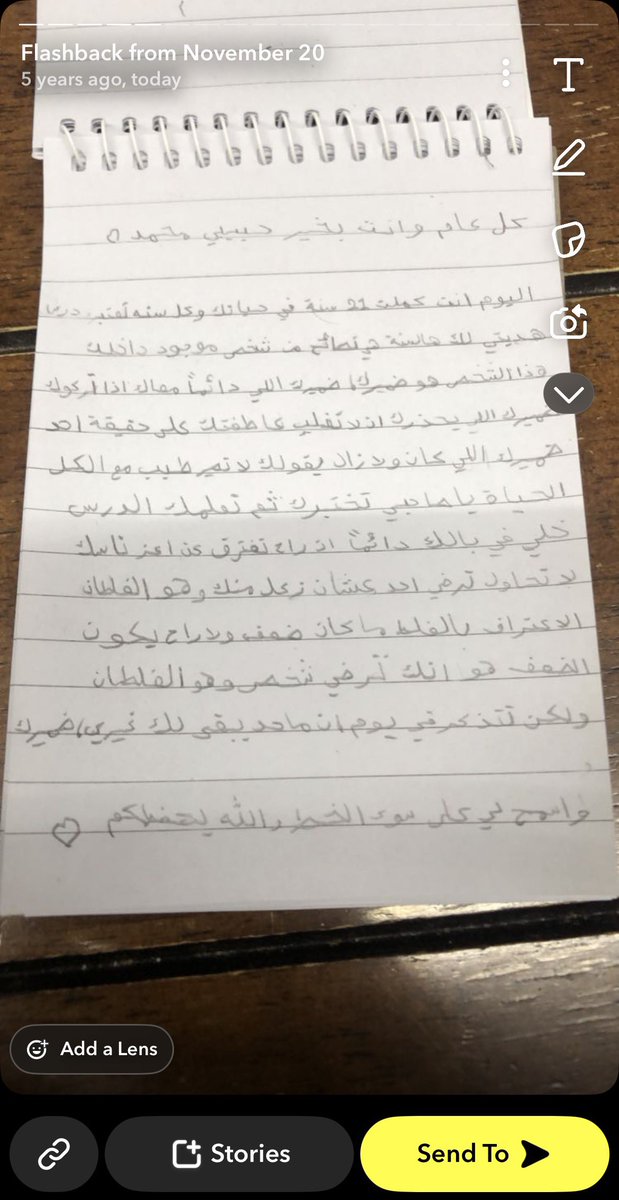 Flashback from November 20
5 years ago, today
T
كل عام وانت بخير حبيبي محمد
اليوم انت كملت 21 سنة في حياتك وكل سنه تعتبر درس
هديتي لك هالسنة هي نصائح من شخص موجود داخلك
هذا الشخص هو ضميرك، ضميرك اللي دائماً معاك اذا
ضميرك اللي يحذرك اذا تغلب عاطفتك على حقيقة احد
ضميرك اللي كان ولازال يقولك لا تصير طيب مع الكل
الحياة ياصاحبي تختبرك ثم تعلمك الدرس
خلي في بالك دائماً اذ راح تفترق عن اعز ناسك
لا تحاول ترضي احد عشان زعل منك وهو الغلطان
الاعتراف بالغلط ما كان ضعف ولا راح يكون
الضعف هو انك تُرضي شخص وهو الغلطان
ولكن تتذكر في يوم ان ماحد يبقى لك غيري، ضميرك
واسمح لي على سوء الخط والله يحفظكم
Add a Lens
Stories
Send To